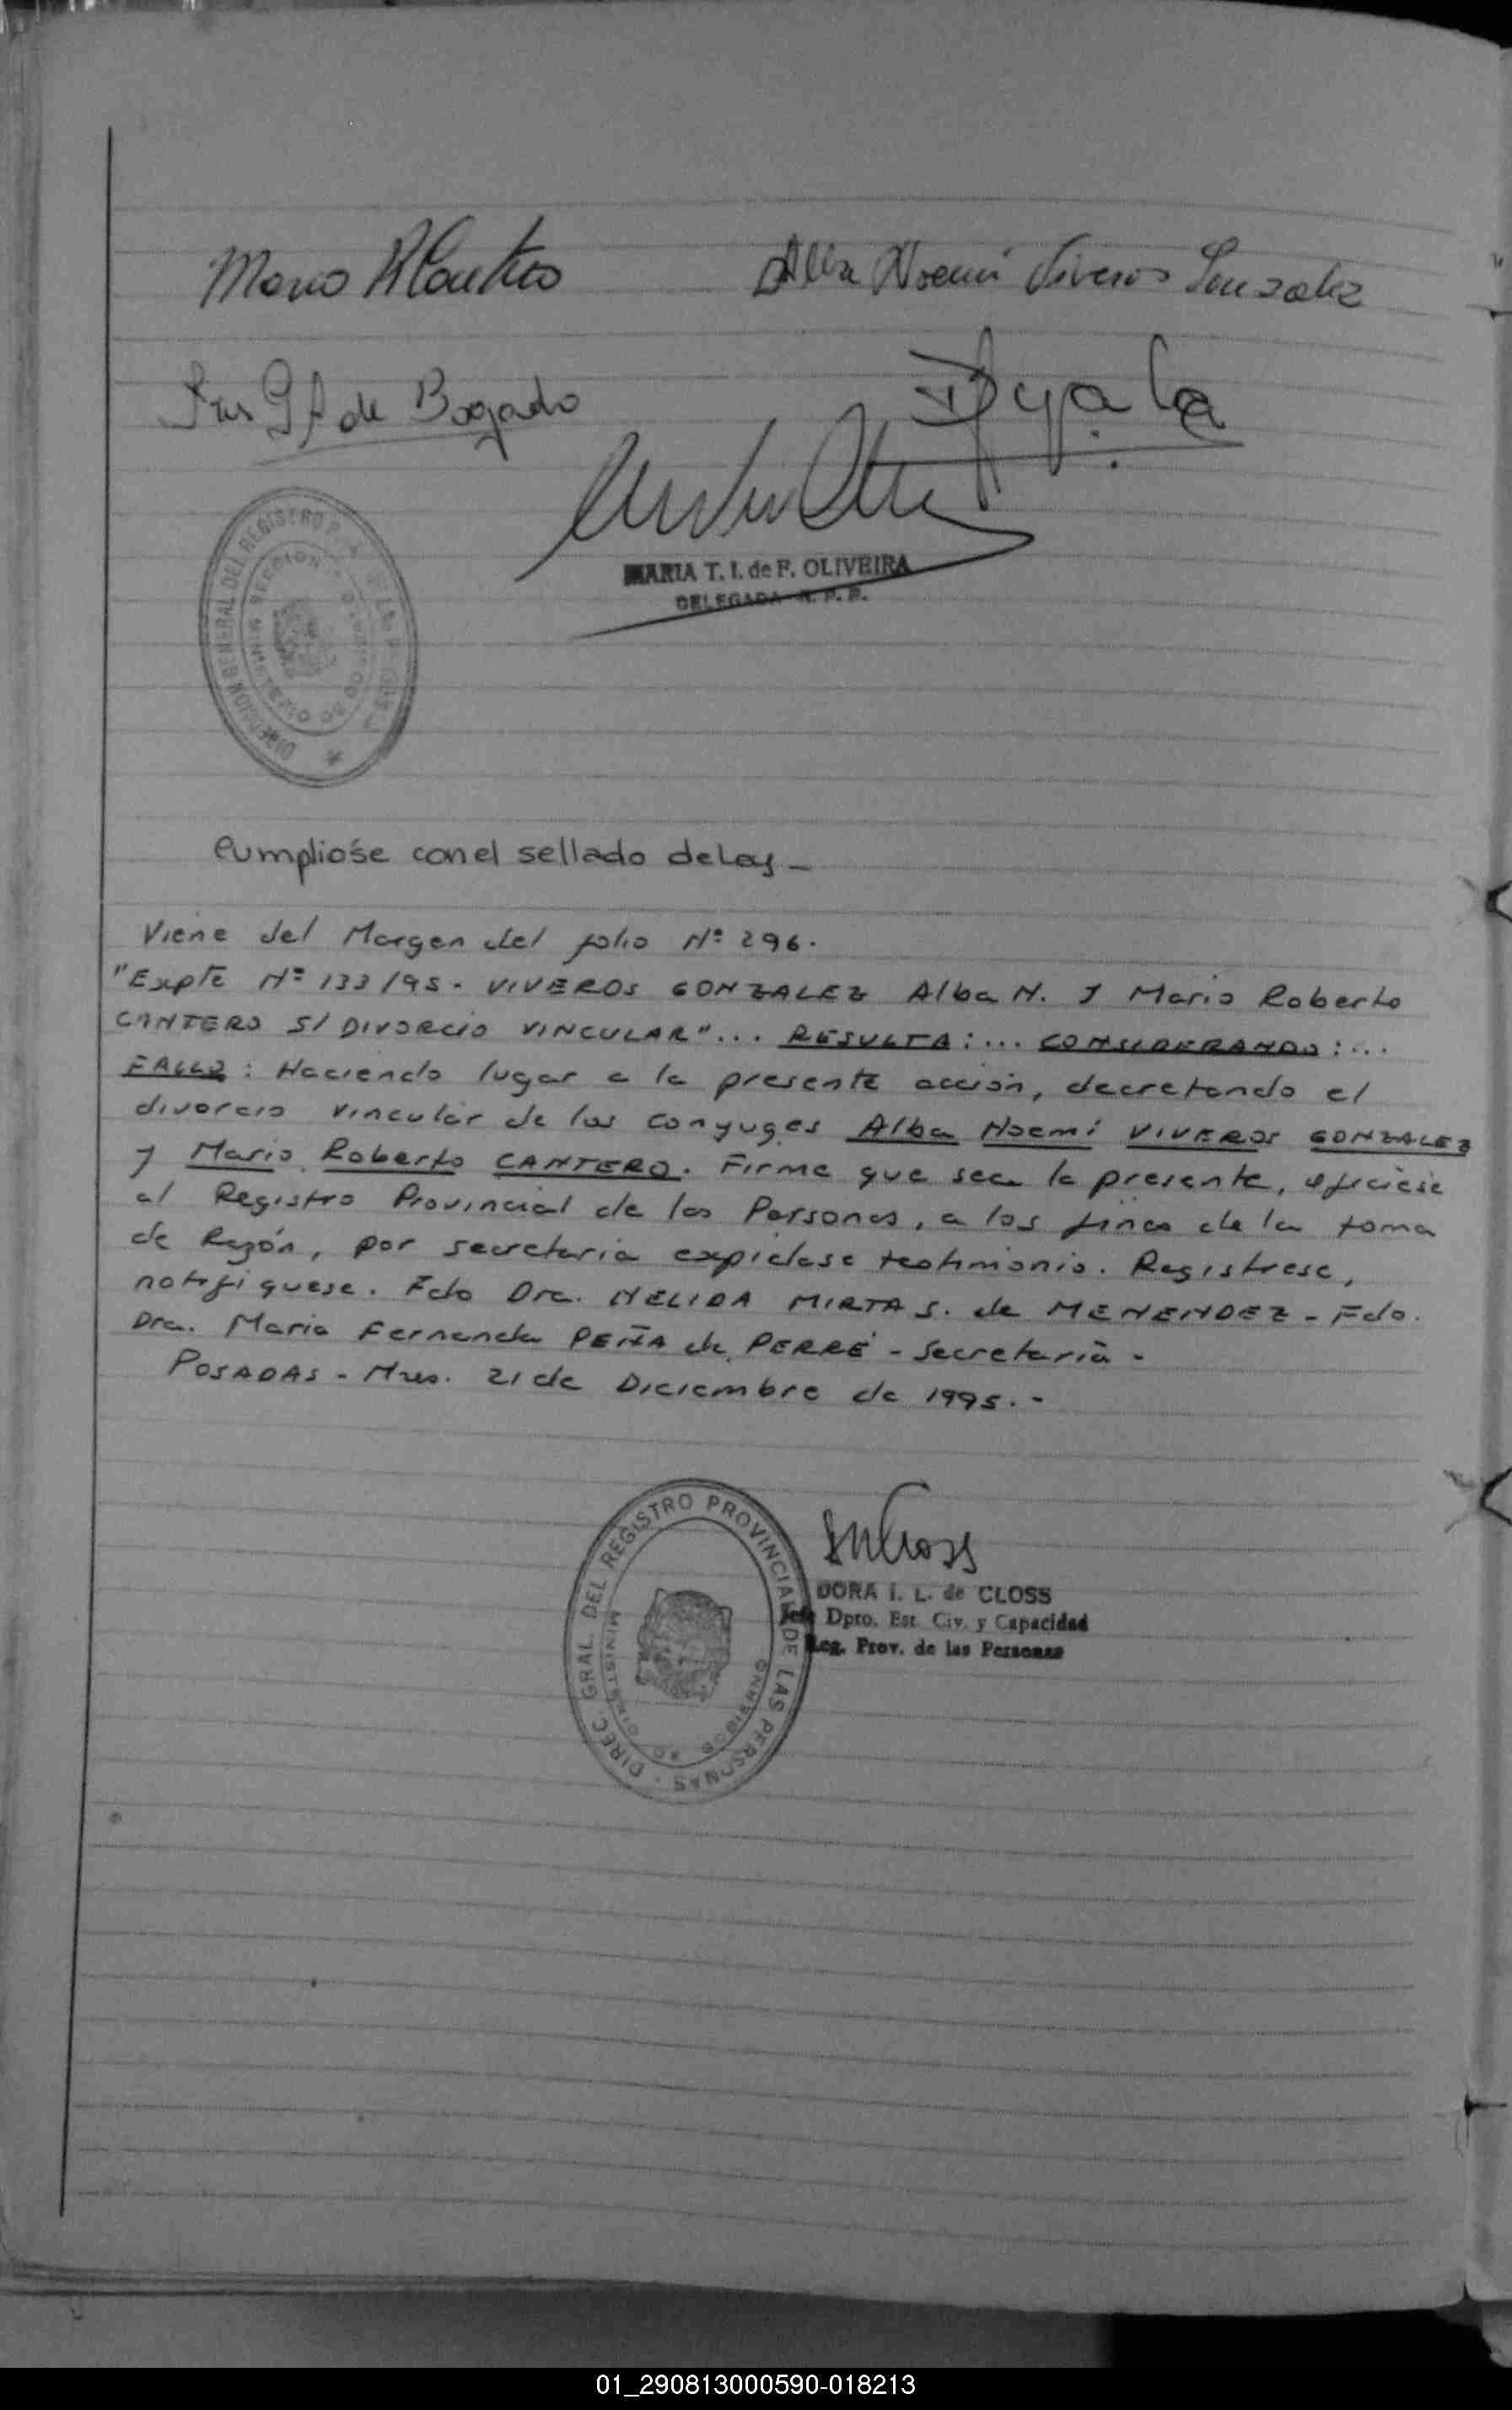 Mario R Cantero
Alba Noemí Viveros Gonzalez
de Bogado
Ayala
MARIA T. I. de F. OLIVEIRA
DELEGADA R. P. P.
DIRECCION GENERAL DEL REGISTRO P. DE LAS PERSONAS
MINISTERIO DE GOBIERNO
Cumpliose con el sellado de Ley -
Viene del Margen del folio Nº 296.
"Expte Nº 133/95 - VIVEROS GONZALEZ Alba N. y Mario Roberto
CANTERO S/ DIVORCIO VINCULAR"... RESULTA:... CONSIDERANDO:...
FALLO: Haciendo lugar a la presente acción, decretando el
divorcio vincular de los conyuges Alba Noemí VIVEROS GONZALEZ
y Mario Roberto CANTERO. Firme que sea la presente, ofíciese
al Registro Provincial de las Personas, a los fines de la toma
de Razón, por secretaria expidase testimonio. Registrese,
notifiquese. Fdo Dra. NELIDA MIRTA S. de MENENDEZ - Fdo.
Dra. Maria Fernanda PEÑA de PERRÉ - Secretaria -
POSADAS - Mnes. 21 de Diciembre de 1995. -
DIREC. GRAL. DEL REGISTRO PROVINCIAL DE LAS PERSONAS
MINISTERIO DE GOBIERNO
DORA I. L. de CLOSS
Jefe Dpto. Est. Civ. y Capacidad
Reg. Prov. de las Personas
01_290813000590-018213